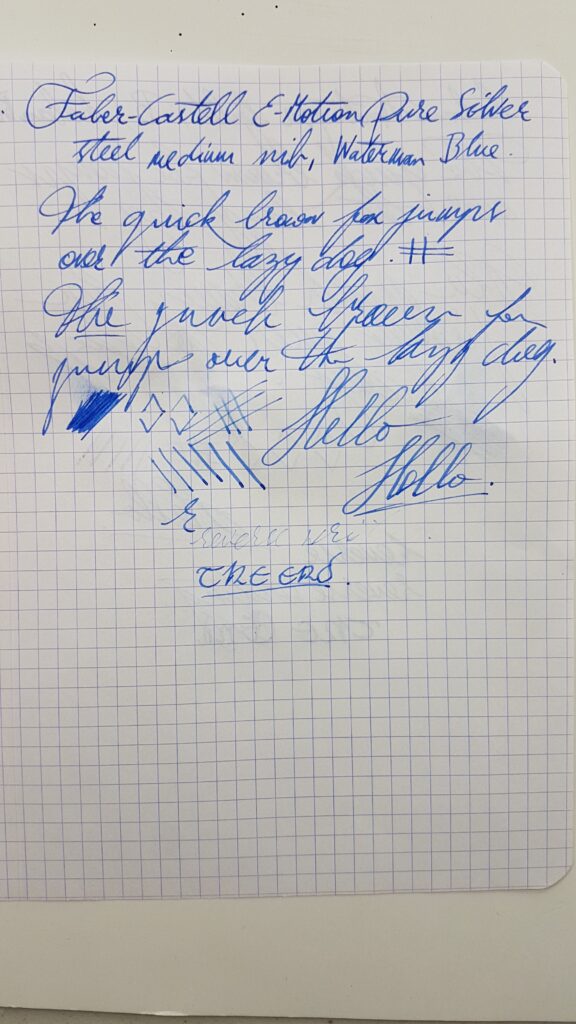 Faber-Castell E-Motion Pure Silver
steel medium nib, Waterman Blue.
The quick brown fox jumps
over the lazy dog.
The quick brown fox
jumps over the lazy dog.
Hello
Hello.
E
CHEERS.